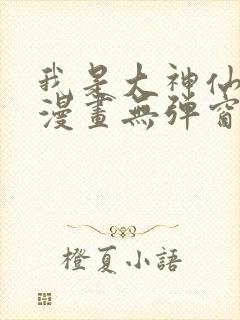 我是大神仙
漫畫無彈窗
橙夏小語